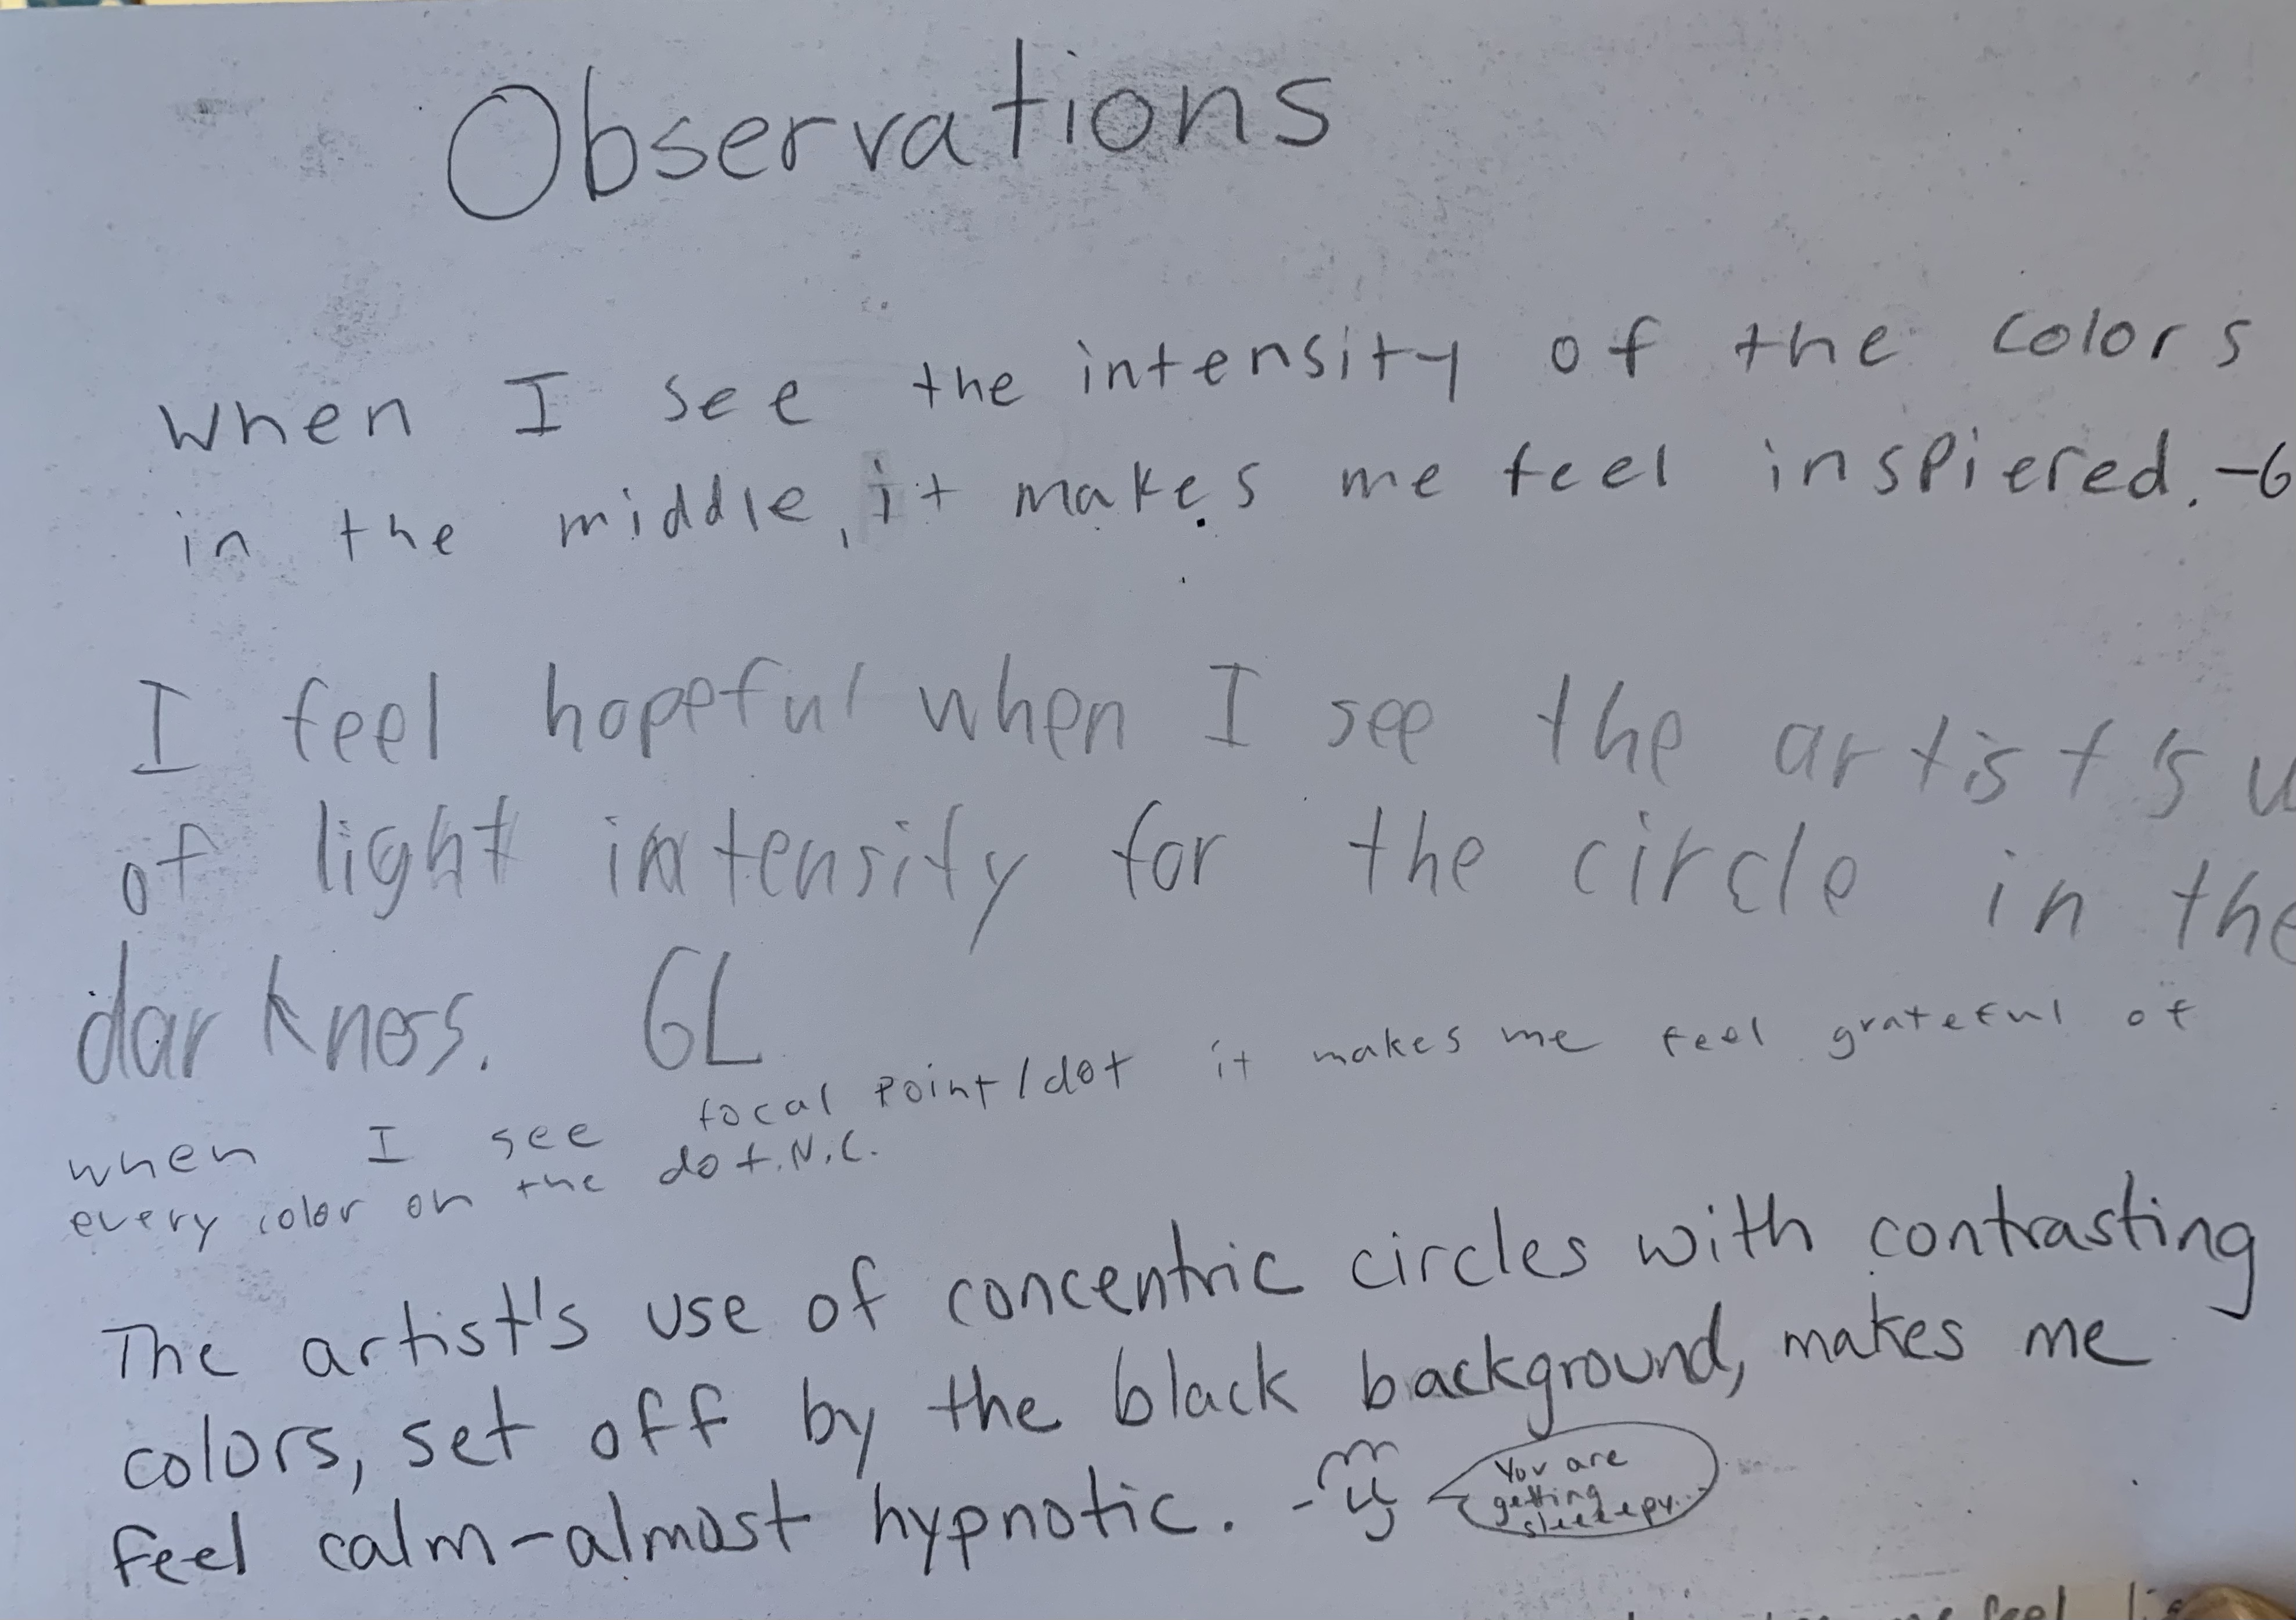 Observations
When I see the intensity of the colors
in the middle, it makes me feel inspiered. -G
I feel hopeful when I see the artist's
of light intensity for the circle in the
darkness. GL
when I see focal point/dot it makes me feel grateful of
every color on the dot. N.C.
The artist's use of concentric circles with contrasting
colors, set off by the black background, makes me
feel calm-almost hypnotic. -
You are
getting
sleeeepy...
feel